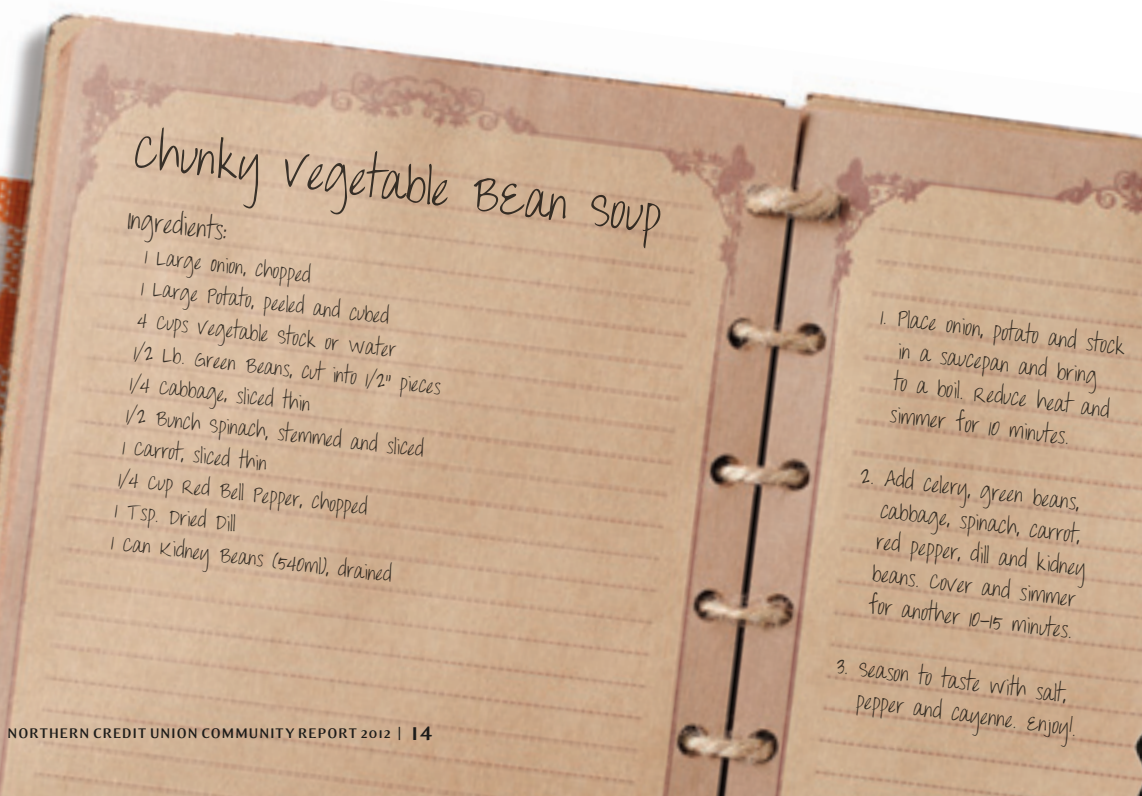 Chunky Vegetable BEan Soup
Ingredients:
1 Large onion, chopped
1 Large Potato, peeled and cubed
4 Cups Vegetable Stock or Water
1/2 Lb. Green Beans, cut into 1/2" pieces
1/4 Cabbage, sliced thin
1/2 Bunch Spinach, stemmed and sliced
1 Carrot, sliced thin
1/4 Cup Red Bell Pepper, chopped
1 Tsp. Dried Dill
1 Can Kidney Beans (540ml), drained
NORTHERN CREDIT UNION COMMUNITY REPORT 2012 | 14
1. Place onion, potato and stock
in a saucepan and bring
to a boil. Reduce heat and
simmer for 10 minutes.
2. Add celery, green beans,
cabbage, spinach, carrot,
red pepper, dill and kidney
beans. Cover and simmer
for another 10-15 minutes.
3. Season to taste with salt,
pepper and cayenne. Enjoy!